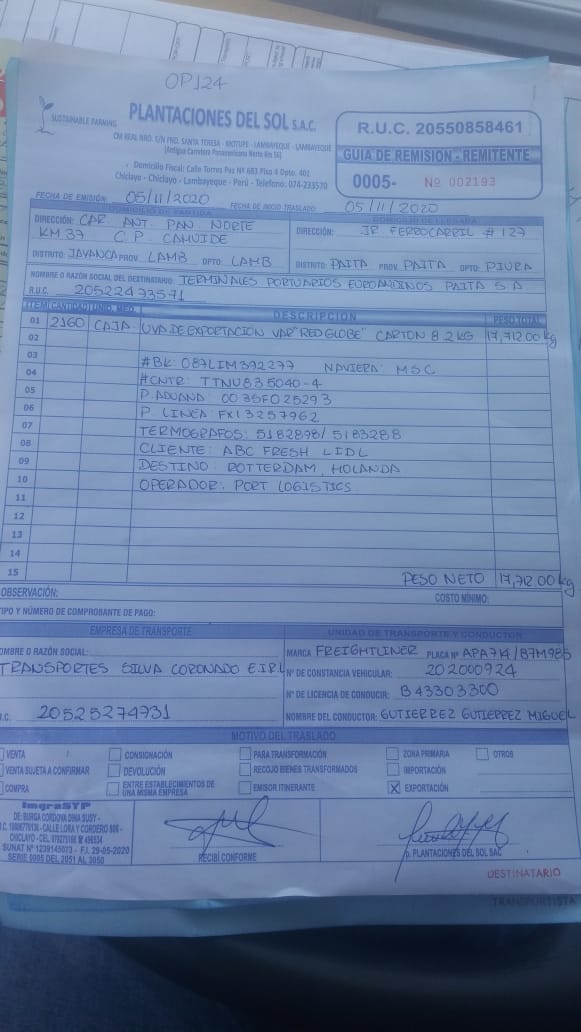 OP124
SUSTAINABLE FARMING
PLANTACIONES DEL SOL S.A.C.
CM REAL NRO. S/N FND. SANTA TERESA - MOTUPE - LAMBAYEQUE - LAMBAYEQUE
(Antigua Carretera Panamericana Norte Km 56)
Domicilio Fiscal: Calle Torres Paz Nº 683 Piso 4 Dpto. 401
Chiclayo - Chiclayo - Lambayeque - Perú - Telefono: 074-233570
R.U.C. 20550858461
GUIA DE REMISION - REMITENTE
0005- Nº 002193
FECHA DE EMISIÓN: 05/11/2020 FECHA DE INICIO TRASLADO: 05/11/2020
DOMICILIO DE PARTIDA DOMICILIO DE LLEGADA
DIRECCIÓN: CAR. ANT. PAN NORTE
KM 37 C.P. CAHUIDE
DIRECCIÓN: JR FERROCARRIL # 127
DISTRITO: JAYANCA PROV. LAMB DPTO: LAMB DISTRITO: PAITA PROV. PAITA DPTO: PIURA
NOMBRE O RAZÓN SOCIAL DEL DESTINATARIO: TERMINALES PORTUARIOS EUROANDINOS PAITA S.A
R.U.C. 20522473571
ITEM CANTIDAD UNID. MED. DESCRIPCION PESO TOTAL
01 2160 CAJA UVA DE EXPORTACION VAR "RED GLOBE" CARTON 8.2 KG 17,712.00 kg
02
03
#BK: 087LIM392277 NAVIERA: MSC
04
#CNTR: TTNU835040-4
05
P. ADUANA: 0035F025293
06
P. LINEA: FX13257962
07
TERMOGRAFOS: 5182898/ 5183288
08
CLIENTE: ABC FRESH LIDL
09
DESTINO: ROTTERDAM, HOLANDA
10
OPERADOR: PORT LOGISTICS
11
12
13
14
15 PESO NETO 17,712.00 kg
OBSERVACIÓN: COSTO MÍNIMO:
TIPO Y NÚMERO DE COMPROBANTE DE PAGO:
EMPRESA DE TRANSPORTE UNIDAD DE TRANSPORTE Y CONDUCTOR
OMBRE O RAZÓN SOCIAL:
TRANSPORTES SILVA CORONADO EIRL
.C. 20525274931
MARCA FREIGHTLINER PLACA Nº APA714/B7M985
Nº DE CONSTANCIA VEHICULAR: 202000924
Nº DE LICENCIA DE CONDUCIR: B43303300
NOMBRE DEL CONDUCTOR: GUTIERREZ GUTIERREZ MIGUEL
MOTIVO DEL TRASLADO
VENTA CONSIGNACIÓN PARA TRANSFORMACIÓN ZONA PRIMARIA OTROS
VENTA SUJETA A CONFIRMAR DEVOLUCIÓN RECOJO BIENES TRANSFORMADOS IMPORTACIÓN
COMPRA ENTRE ESTABLECIMIENTOS DE UNA MISMA EMPRESA EMISOR ITINERANTE X EXPORTACIÓN
ImgraSYP
DE: BURGA CORDOVA DINA SUSY -
CALLE LORA Y CORDERO
CHICLAYO - CEL.
SUNAT Nº 1239145073 - F.I. 29-05-2020
SERIE 0005 DEL 2051 AL 3050
RECIBÍ CONFORME
p. PLANTACIONES DEL SOL SAC
DESTINATARIO
TRANSPORTISTA